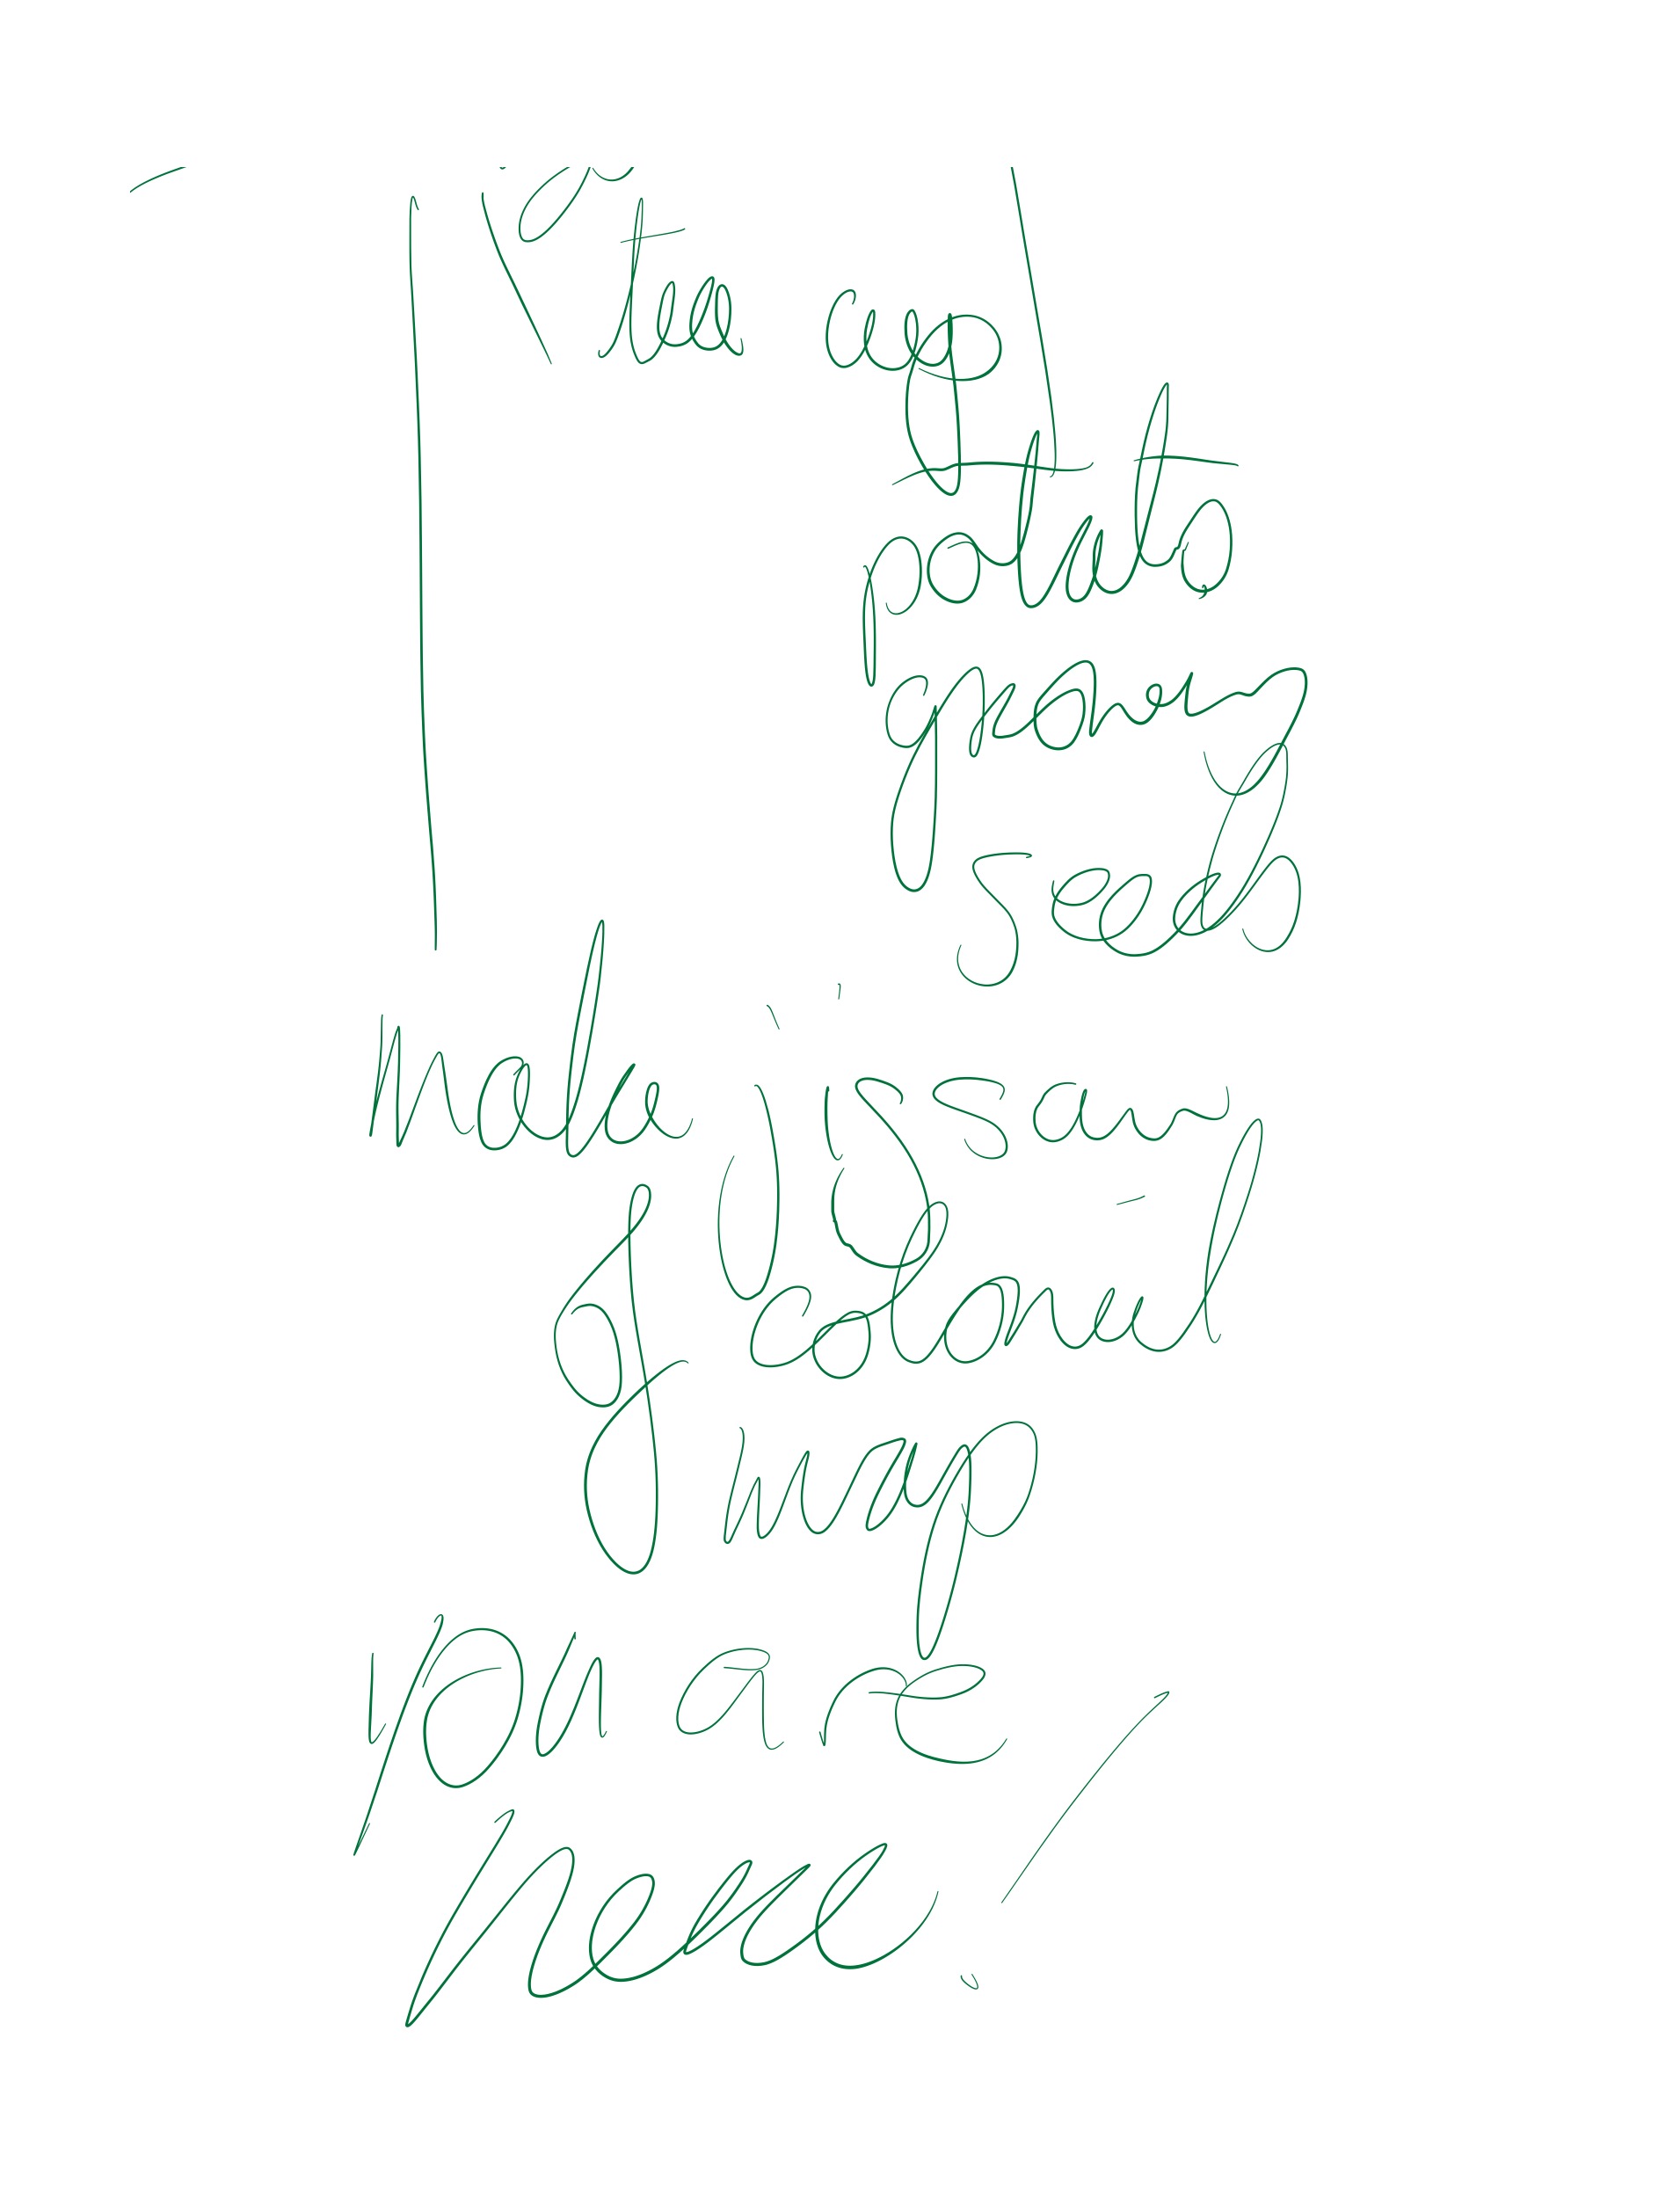 tea cup
potato
seeds
make jigsaw
of colonial
map
you are
here!